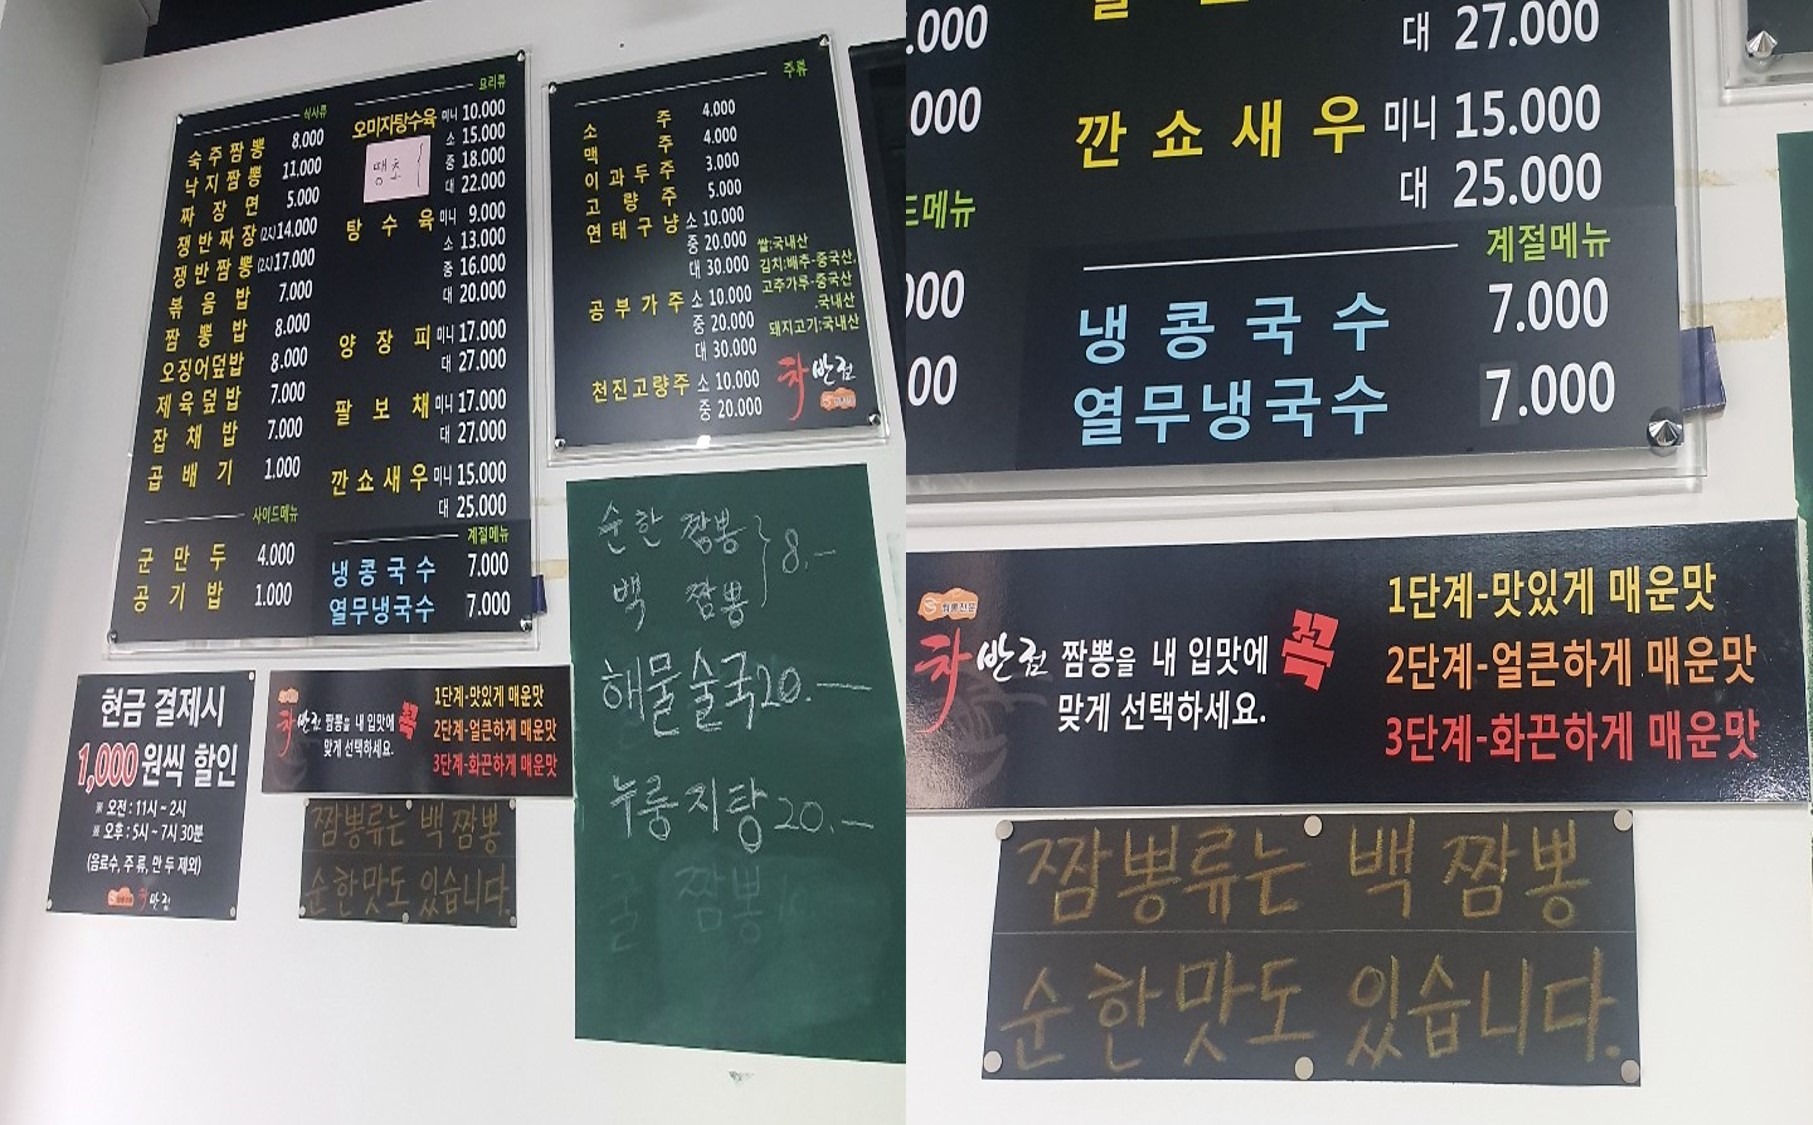 식사류
숙주짬뽕 8.000
낙지짬뽕 11.000
짜장면 5.000
쟁반짜장(2人) 14.000
쟁반짬뽕(2人) 17.000
볶음밥 7.000
짬뽕밥 8.000
오징어덮밥 8.000
제육덮밥 7.000
잡채밥 7.000
곱배기 1.000
사이드메뉴
군만두 4.000
공기밥 1.000
요리류
오미자탕수육 미니 10.000
소 15.000
땡초 { 중 18.000
대 22.000
탕수육 미니 9.000
소 13.000
중 16.000
대 20.000
양장피 미니 17.000
대 27.000
팔보채 미니 17.000
대 27.000
깐쇼새우 미니 15.000
대 25.000
계절메뉴
냉콩국수 7.000
열무냉국수 7.000
주류
소주 4.000
맥주 4.000
이과두주 3.000
고량주 5.000
연태구냥 소 10.000
중 20.000
대 30.000
공부가주 소 10.000
중 20.000
대 30.000
천진고량주 소 10.000
중 20.000
쌀:국내산
김치:배추-중국산,
고추가루-중국산
국내산
돼지고기:국내산
차반점
현금 결제시
1,000원씩 할인
※ 오전 : 11시 ~ 2시
※ 오후 : 5시 ~ 7시 30분
(음료수, 주류, 만두 제외)
차반점
차반점 짬뽕을 내 입맛에 꼭
맞게 선택하세요.
1단계-맛있게 매운맛
2단계-얼큰하게 매운맛
3단계-화끈하게 매운맛
짬뽕류는 백짬뽕
순한맛도 있습니다.
순한 짬뽕 } 8.-
백 짬뽕
해물술국 20.-
누룽지탕 20.-
굴 짬뽕
.000
대 27.000
000
깐쇼새우 미니 15.000
대 25.000
드메뉴
계절메뉴
000
냉콩국수 7.000
00
열무냉국수 7.000
짬뽕전문
차반점 짬뽕을 내 입맛에 꼭
맞게 선택하세요.
1단계-맛있게 매운맛
2단계-얼큰하게 매운맛
3단계-화끈하게 매운맛
짬뽕류는 백짬뽕
순한맛도 있습니다.